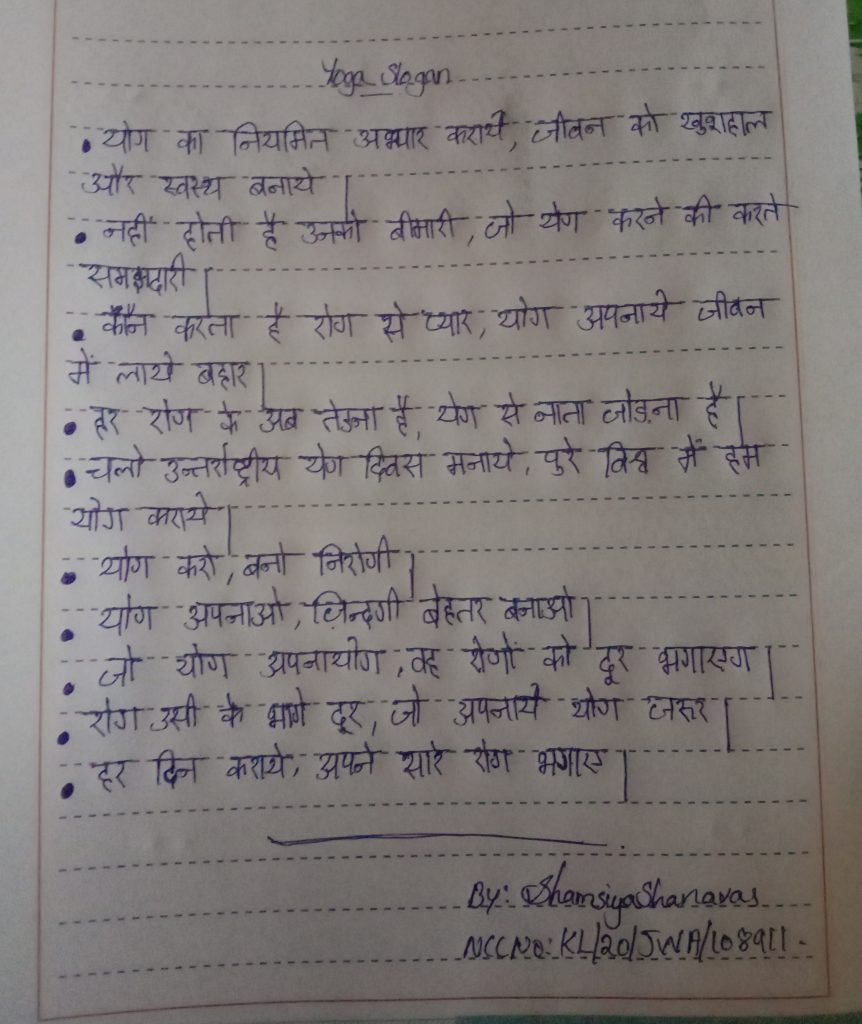 Yoga Slogan
• योग का नियमित अभ्यार कराये, जीवन को खुशहाल
और स्वस्थ बनाये |
• नहीं होती है उनको बीमारी, जो येग करने की करते
समझदारी |
• कौन करता है रोग से प्यार, योग अपनाये जीवन
में लाये बहार |
• हर रोग के अब तेऊना है, येग से नाता जोड़ना है |
• चलो उन्तर्राष्ट्रीय येग दिवस मनाये, पुरे विश्व में हम
योग कराये |
• योग करो, बनो निरोगी |
• योग अपनाओ, ज़िन्दगी बेहतर बनाओ |
• जो योग अपनायोग, वह रोगों को दूर भगाएग |
• रोग उसी के भागे दूर, जो अपनाये योग जरूर |
• हर दिन कराये, अपने सारे रोग भगाए |
By: Shamsiya Shanavas
NCC No: KL/20/JWA/108911.